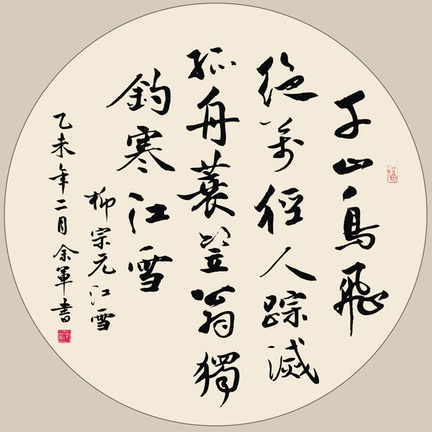 千山鳥飛
絕萬徑人踪滅
孤舟蓑笠翁獨
釣寒江雪
柳宗元江雪
乙未年二月余軍書